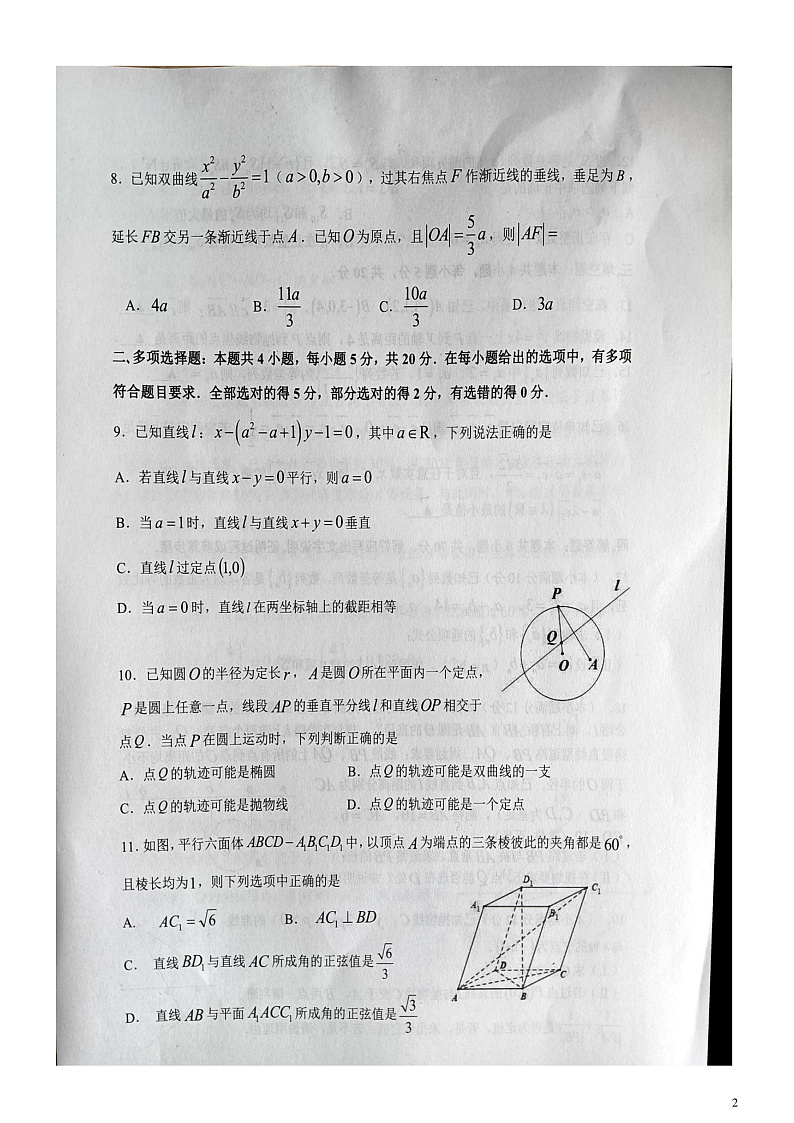 8. 已知双曲线 x²/a² − y²/b² =1 ( a>0,b>0 ), 过其右焦点 F 作渐近线的垂线, 垂足为 B ,
延长 FB 交另一条渐近线于点 A . 已知 O 为原点, 且 |OA| = 5/3 a , 则 |AF| =
A. 4a B. 11a/3 C. 10a/3 D. 3a
二、多项选择题: 本题共 4 小题, 每小题 5 分, 共 20 分. 在每小题给出的选项中, 有多项
符合题目要求. 全部选对的得 5 分, 部分选对的得 2 分, 有选错的得 0 分.
9. 已知直线 l : x−(a²−a+1)y−1=0 , 其中 a∈R , 下列说法正确的是
A. 若直线 l 与直线 x−y=0 平行, 则 a=0
B. 当 a=1 时, 直线 l 与直线 x+y=0 垂直
C. 直线 l 过定点 (1,0)
D. 当 a=0 时, 直线 l 在两坐标轴上的截距相等
P l Q O A
10. 已知圆 O 的半径为定长 r , A 是圆 O 所在平面内一个定点,
P 是圆上任意一点, 线段 AP 的垂直平分线 l 和直线 OP 相交于
点 Q . 当点 P 在圆上运动时, 下列判断正确的是
A. 点 Q 的轨迹可能是椭圆 B. 点 Q 的轨迹可能是双曲线的一支
C. 点 Q 的轨迹可能是抛物线 D. 点 Q 的轨迹可能是一个定点
11. 如图, 平行六面体 ABCD−A₁B₁C₁D₁ 中, 以顶点 A 为端点的三条棱彼此的夹角都是 60° ,
且棱长均为 1 , 则下列选项中正确的是
A. AC₁=√6 B. AC₁⊥BD
C. 直线 BD₁ 与直线 AC 所成角的正弦值是 √6/3
D. 直线 AB 与平面 A₁ACC₁ 所成角的正弦值是 √3/3
D₁ C₁ A₁ B₁ D C A B
2